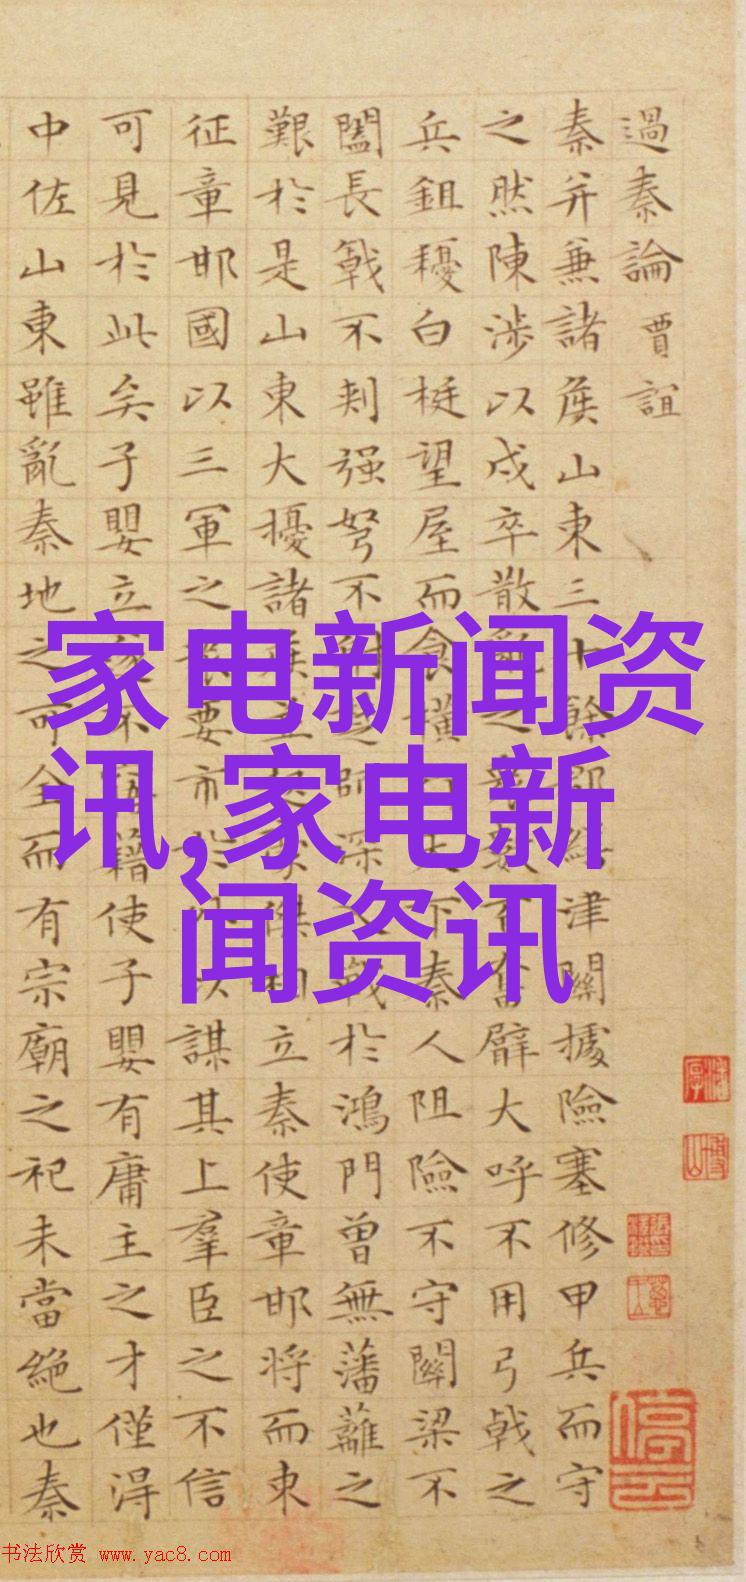 過秦論 賈誼
秦并兼諸侯山東三十餘郡津關據險塞修甲兵而守
之然陳涉以戍卒散亂之奮臂大呼不用弓戟之
兵鉏耰白梃望屋而食橫下秦人阻險不守關梁不
闔長戟不刺强弩不射師深戰於鴻門曾無藩籬之
艱於是山東大擾諸侯立秦使章邯將而東
征章邯國以三軍之要市於謀其上羣臣之不信
可見於此矣子嬰立不藉使子嬰有庸主之才僅得
中佐山東雖亂秦地之可全而有宗廟之祀未當絶也秦
家电新闻资
讯,家电新
闻资讯
停云
书法欣赏 www.yac8.com